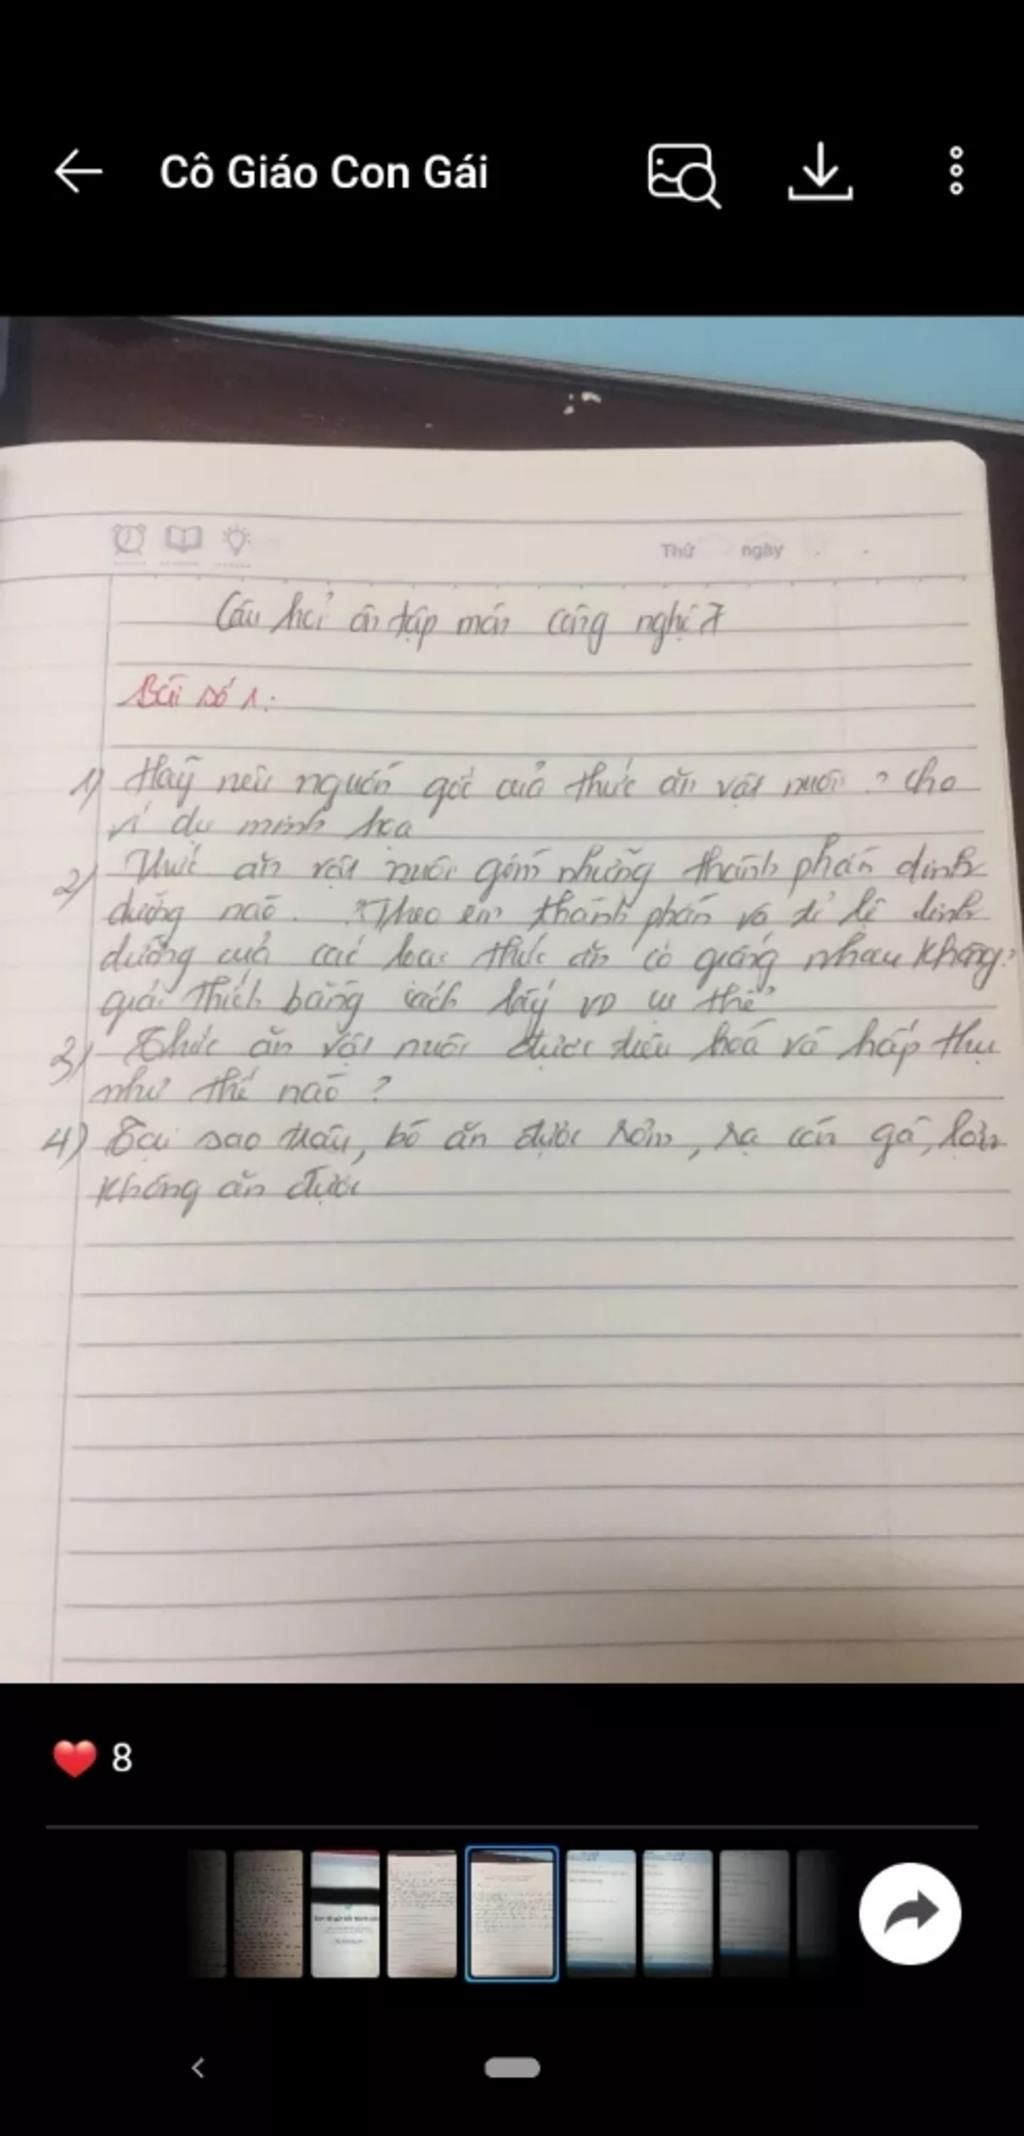 Cô Giáo Con Gái
Thứ ngày
Câu hỏi ôn tập môn công nghệ 7
Bài số 1:
1) Hãy nêu nguồn gốc của thức ăn vật nuôi ? cho
ví dụ minh họa
2) Thức ăn vật nuôi gồm những thành phần dinh
dưỡng nào. Theo em thành phần và tỉ lệ dinh
dưỡng của các loại thức ăn có giống nhau không?
giải thích bằng cách lấy VD cụ thể
3) Thức ăn vật nuôi được tiêu hoá và hấp thụ
như thế nào ?
4) Tại sao trâu, bò ăn được rơm, rạ còn gà, lợn
không ăn được
8